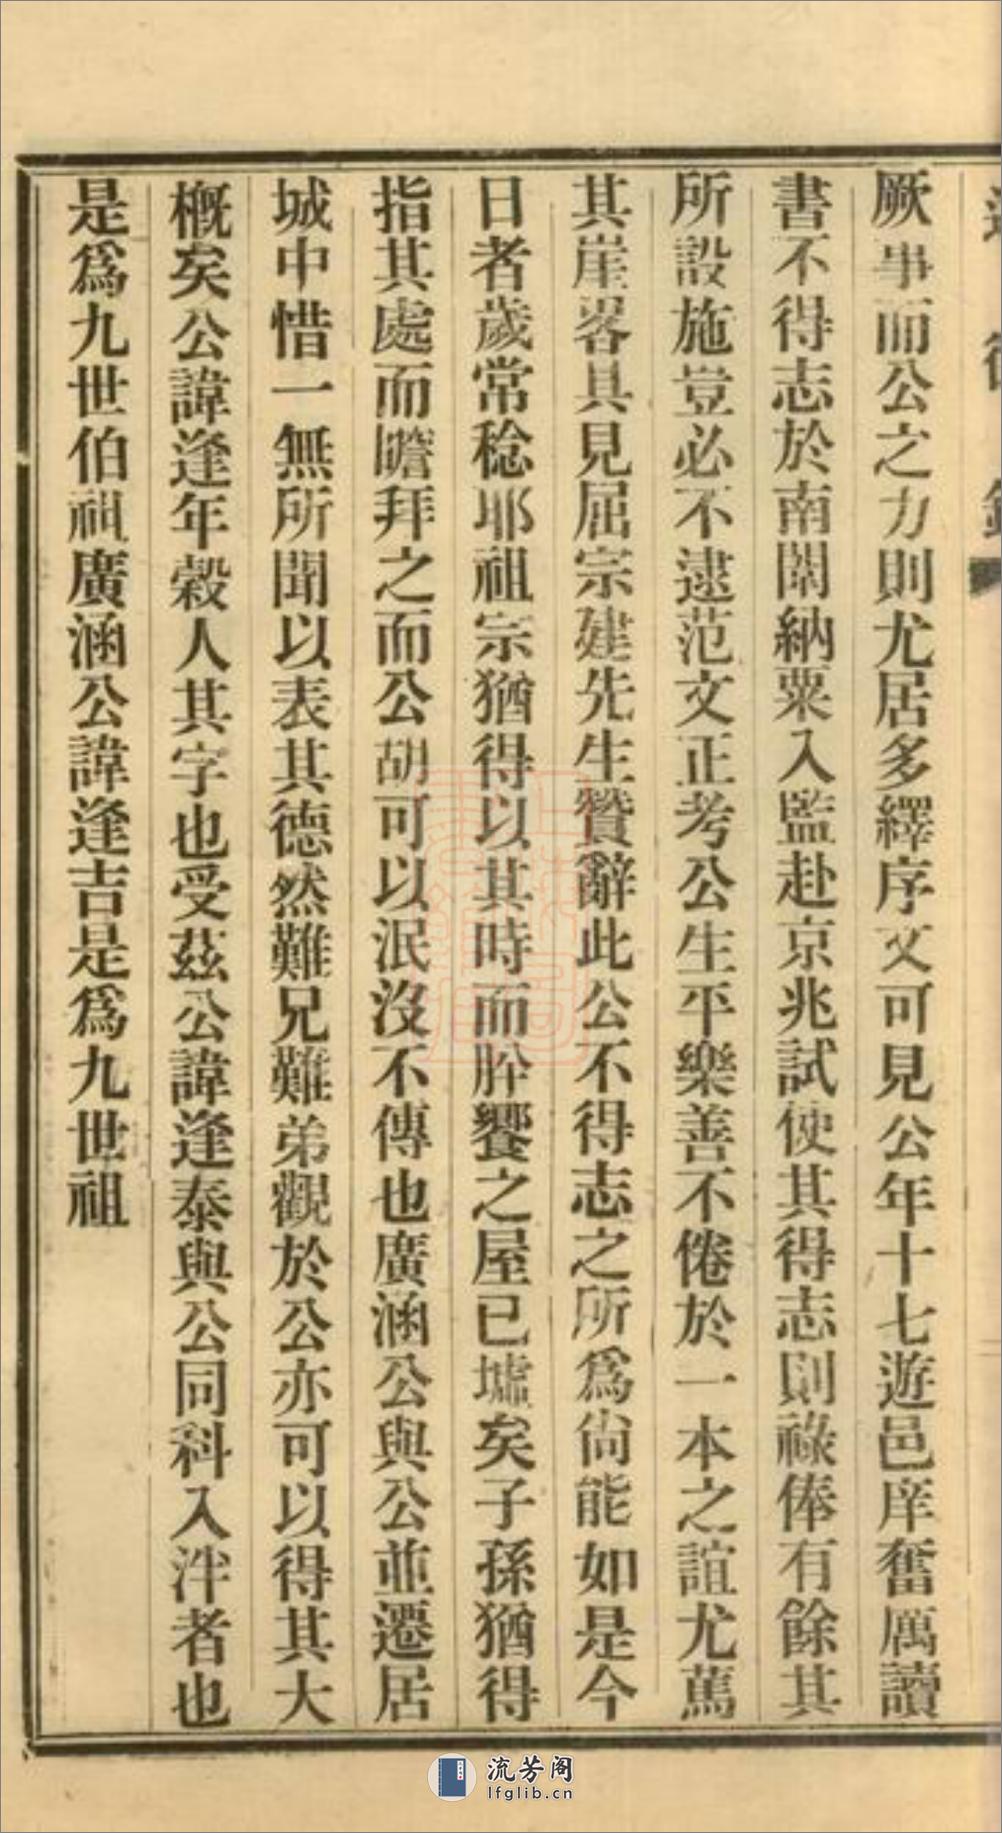 厥事而公之力則尤居多繹序文可見公年十七遊邑庠奮厲讀
書不得志於南闈納粟入監赴京兆試使其得志則祿俸有餘其
所設施豈必不逮范文正考公生平樂善不倦於一本之誼尤篤
其崖畧具見屈宗建先生贊辭此公不得志之所爲尙能如是今
日者歲常稔耶祖宗猶得以其時而肸饗之屋已墟矣子孫猶得
指其處而瞻拜之而公胡可以泯沒不傳也廣涵公與公並遷居
城中惜一無所聞以表其德然難兄難弟觀於公亦可以得其大
槪矣公諱逢年穀人其字也受茲公諱逢泰與公同科入泮者也
是爲九世伯祖廣涵公諱逢吉是爲九世祖
流芳阁
lfglib.cn